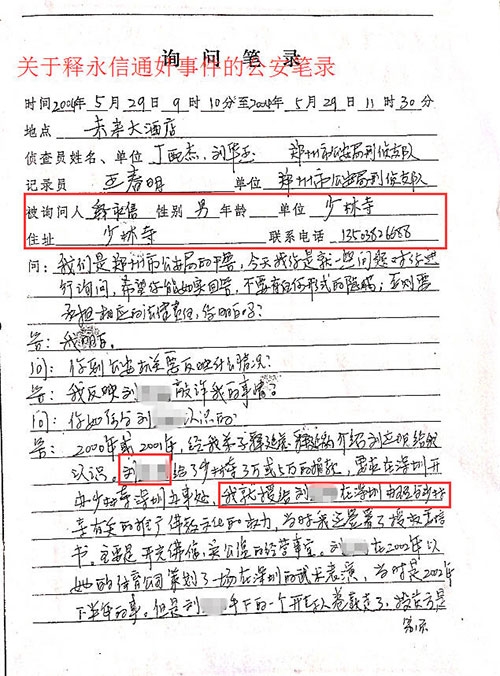 询 问 笔 录
关于释永信通奸事件的公安笔录
时间2004年5月29日9时10分至2004年5月29日11时30分
地点 未来大酒店
侦查员姓名、单位 丁 杰、刘华 郑州市公安局刑侦支队
记录员 王春明 单位 郑州市公安局刑侦支队
被询问人 释永信 性别 男 年龄 单位 少林寺
住址 少林寺 联系电话
问：我们是郑州市公安局的干警，今天我们是就 问题对你进
行询问，希望你能如实回答，不要有任何形式的隐瞒；否则要
承担相应的法律责任，你明白吗？
答：我明白。
问：你到公安机关要反映什么情况？
答：我反映刘 敲诈我的事情？
问：你如何与刘 认识的
答：2000年或2001年，经我弟子释延 介绍 给我
认识。刘 给了少林寺3万或5万的捐款，要求在深圳开
办少林寺深圳办事处。我就授给刘 在深圳
委有关的推广佛教文化的权力，当时我还签署了授权委托
书。主要是开光佛像，关公 的经营事宜。刘 在2002年以
她的体育公司策划了一场在深圳的武术表演，当时是2002年
下半年的事。但是刘 手下的一个 卷款走了，演出